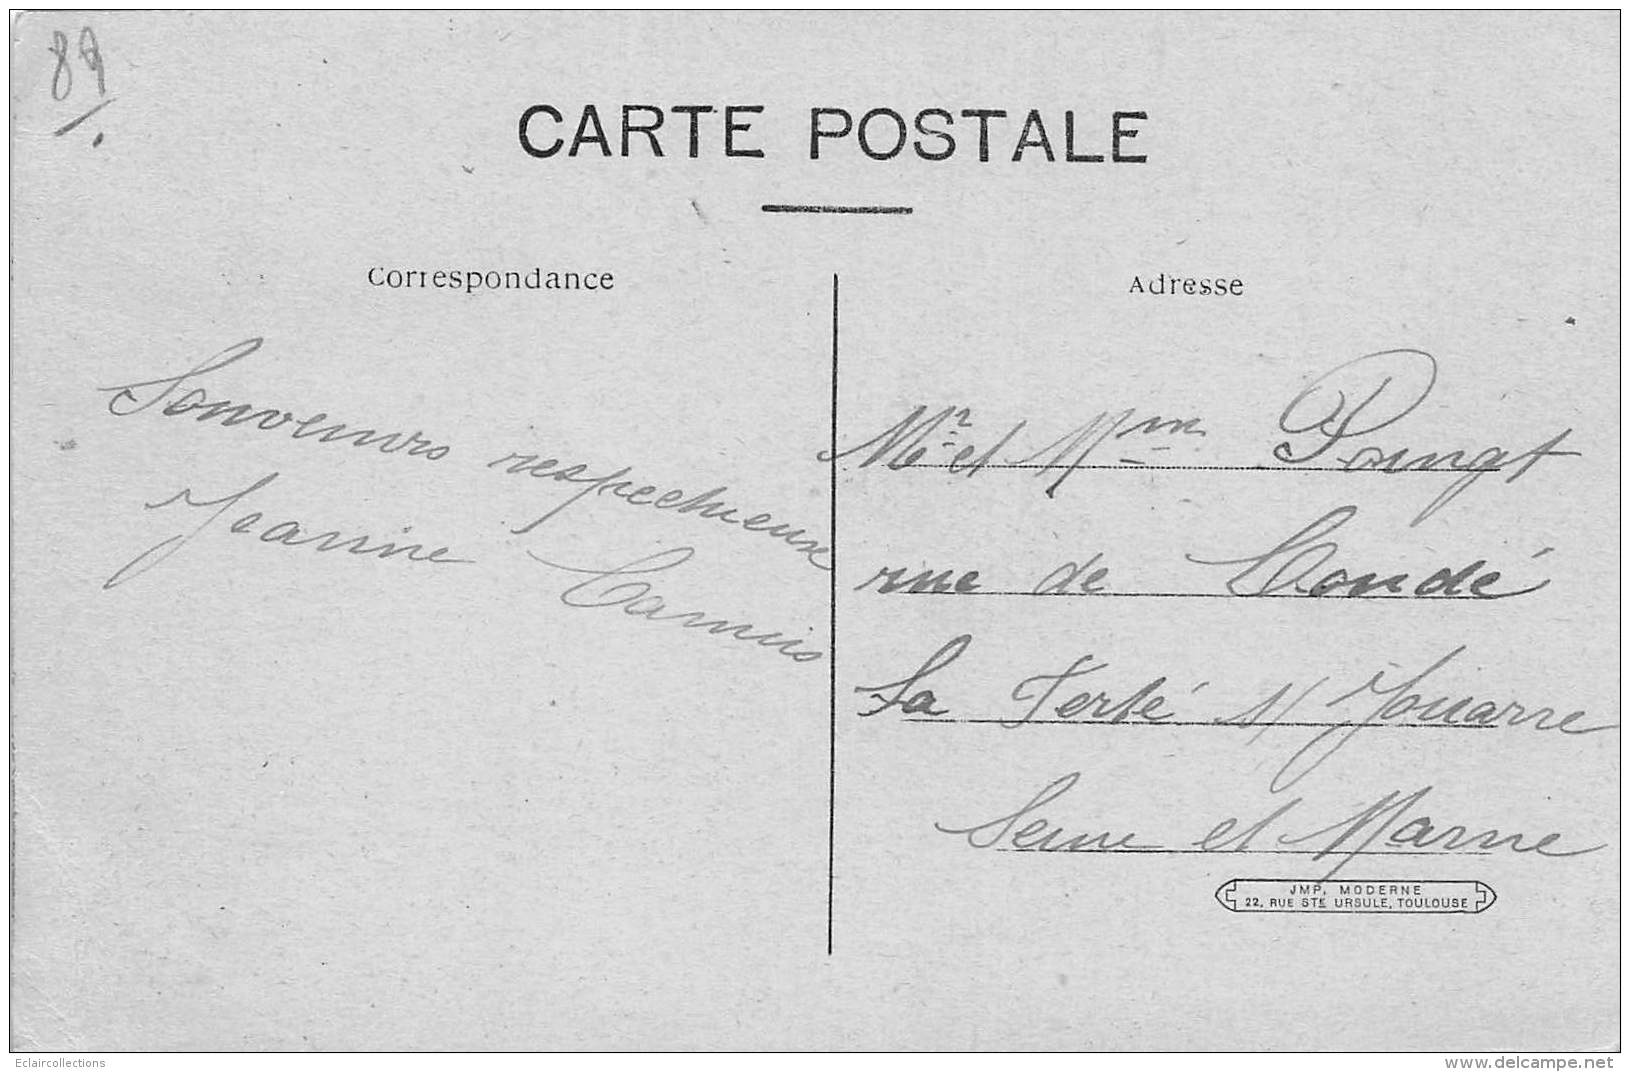 89
CARTE POSTALE
Correspondance
Adresse
Souvenirs respectueux
Jeanne Camus
Mr et Mme
rue de Condé
La Ferté s/ Jouarre
Seine et Marne
JMP. MODERNE
22, RUE STE URSULE, TOULOUSE
Eclaircollections
www.delcampe.net